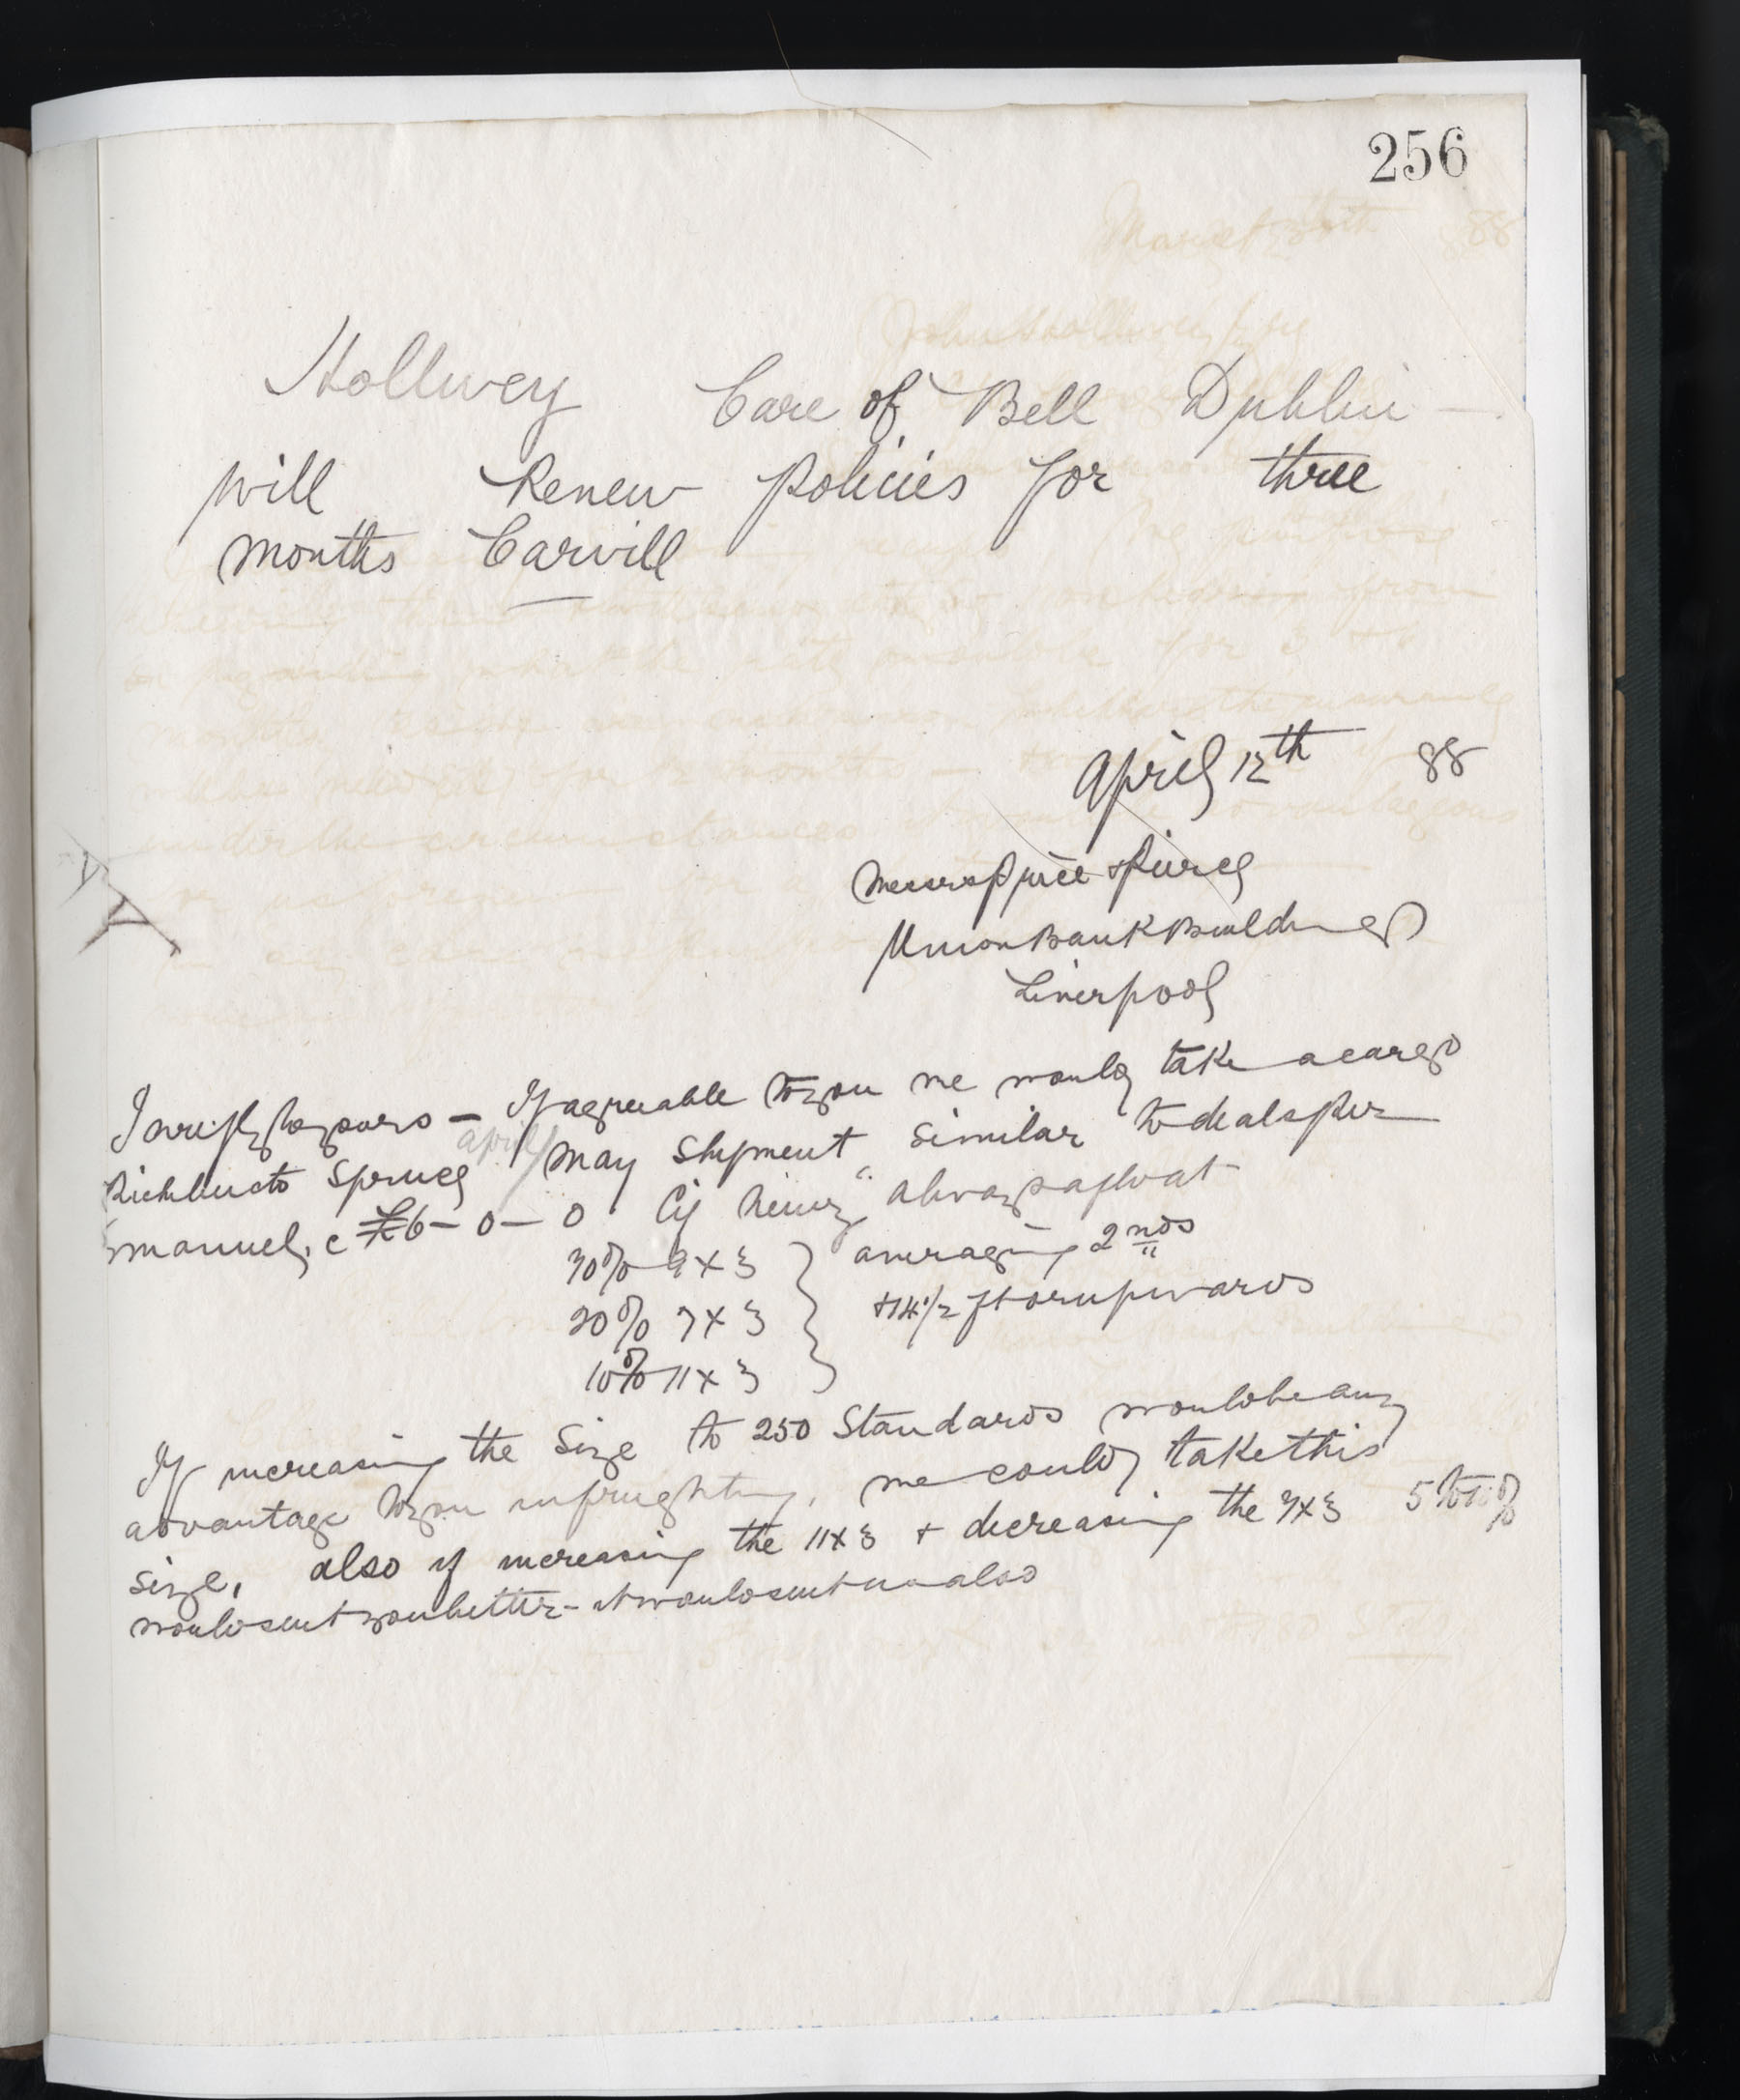 256
Hollwey Care of Bell Dublin —
will Renew policies for three
months Carvill
April 12th 88
Messrs Price & Pierce
Union Bank Buildings
Liverpool
In reply to yours — If agreeable to you we would take a cargo
Richibucto Spruce April / May shipment similar to deals per
c £6-0-0 Cif Newry "always afloat
70% 9x3 } averaging 2nds
20% 7x3 } +14 1/2 ft or upwards
10% 11x3 }
If increasing the size to 250 Standards would be any
advantage to you in freighting, we could take this
size, also if increasing the 11x3 + decreasing the 7x3 5 to 10%
would suit you better - it would suit us also